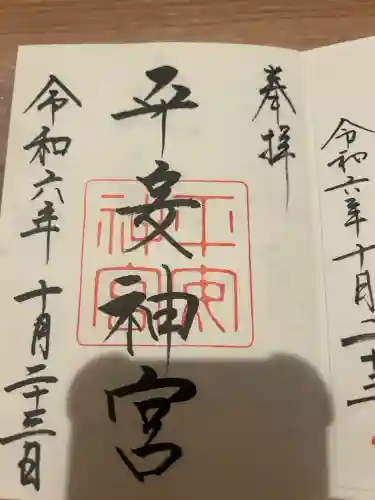 令和六年十月二十三
奉拝
平安神宮
平安神宮
令和六年十月二十三日